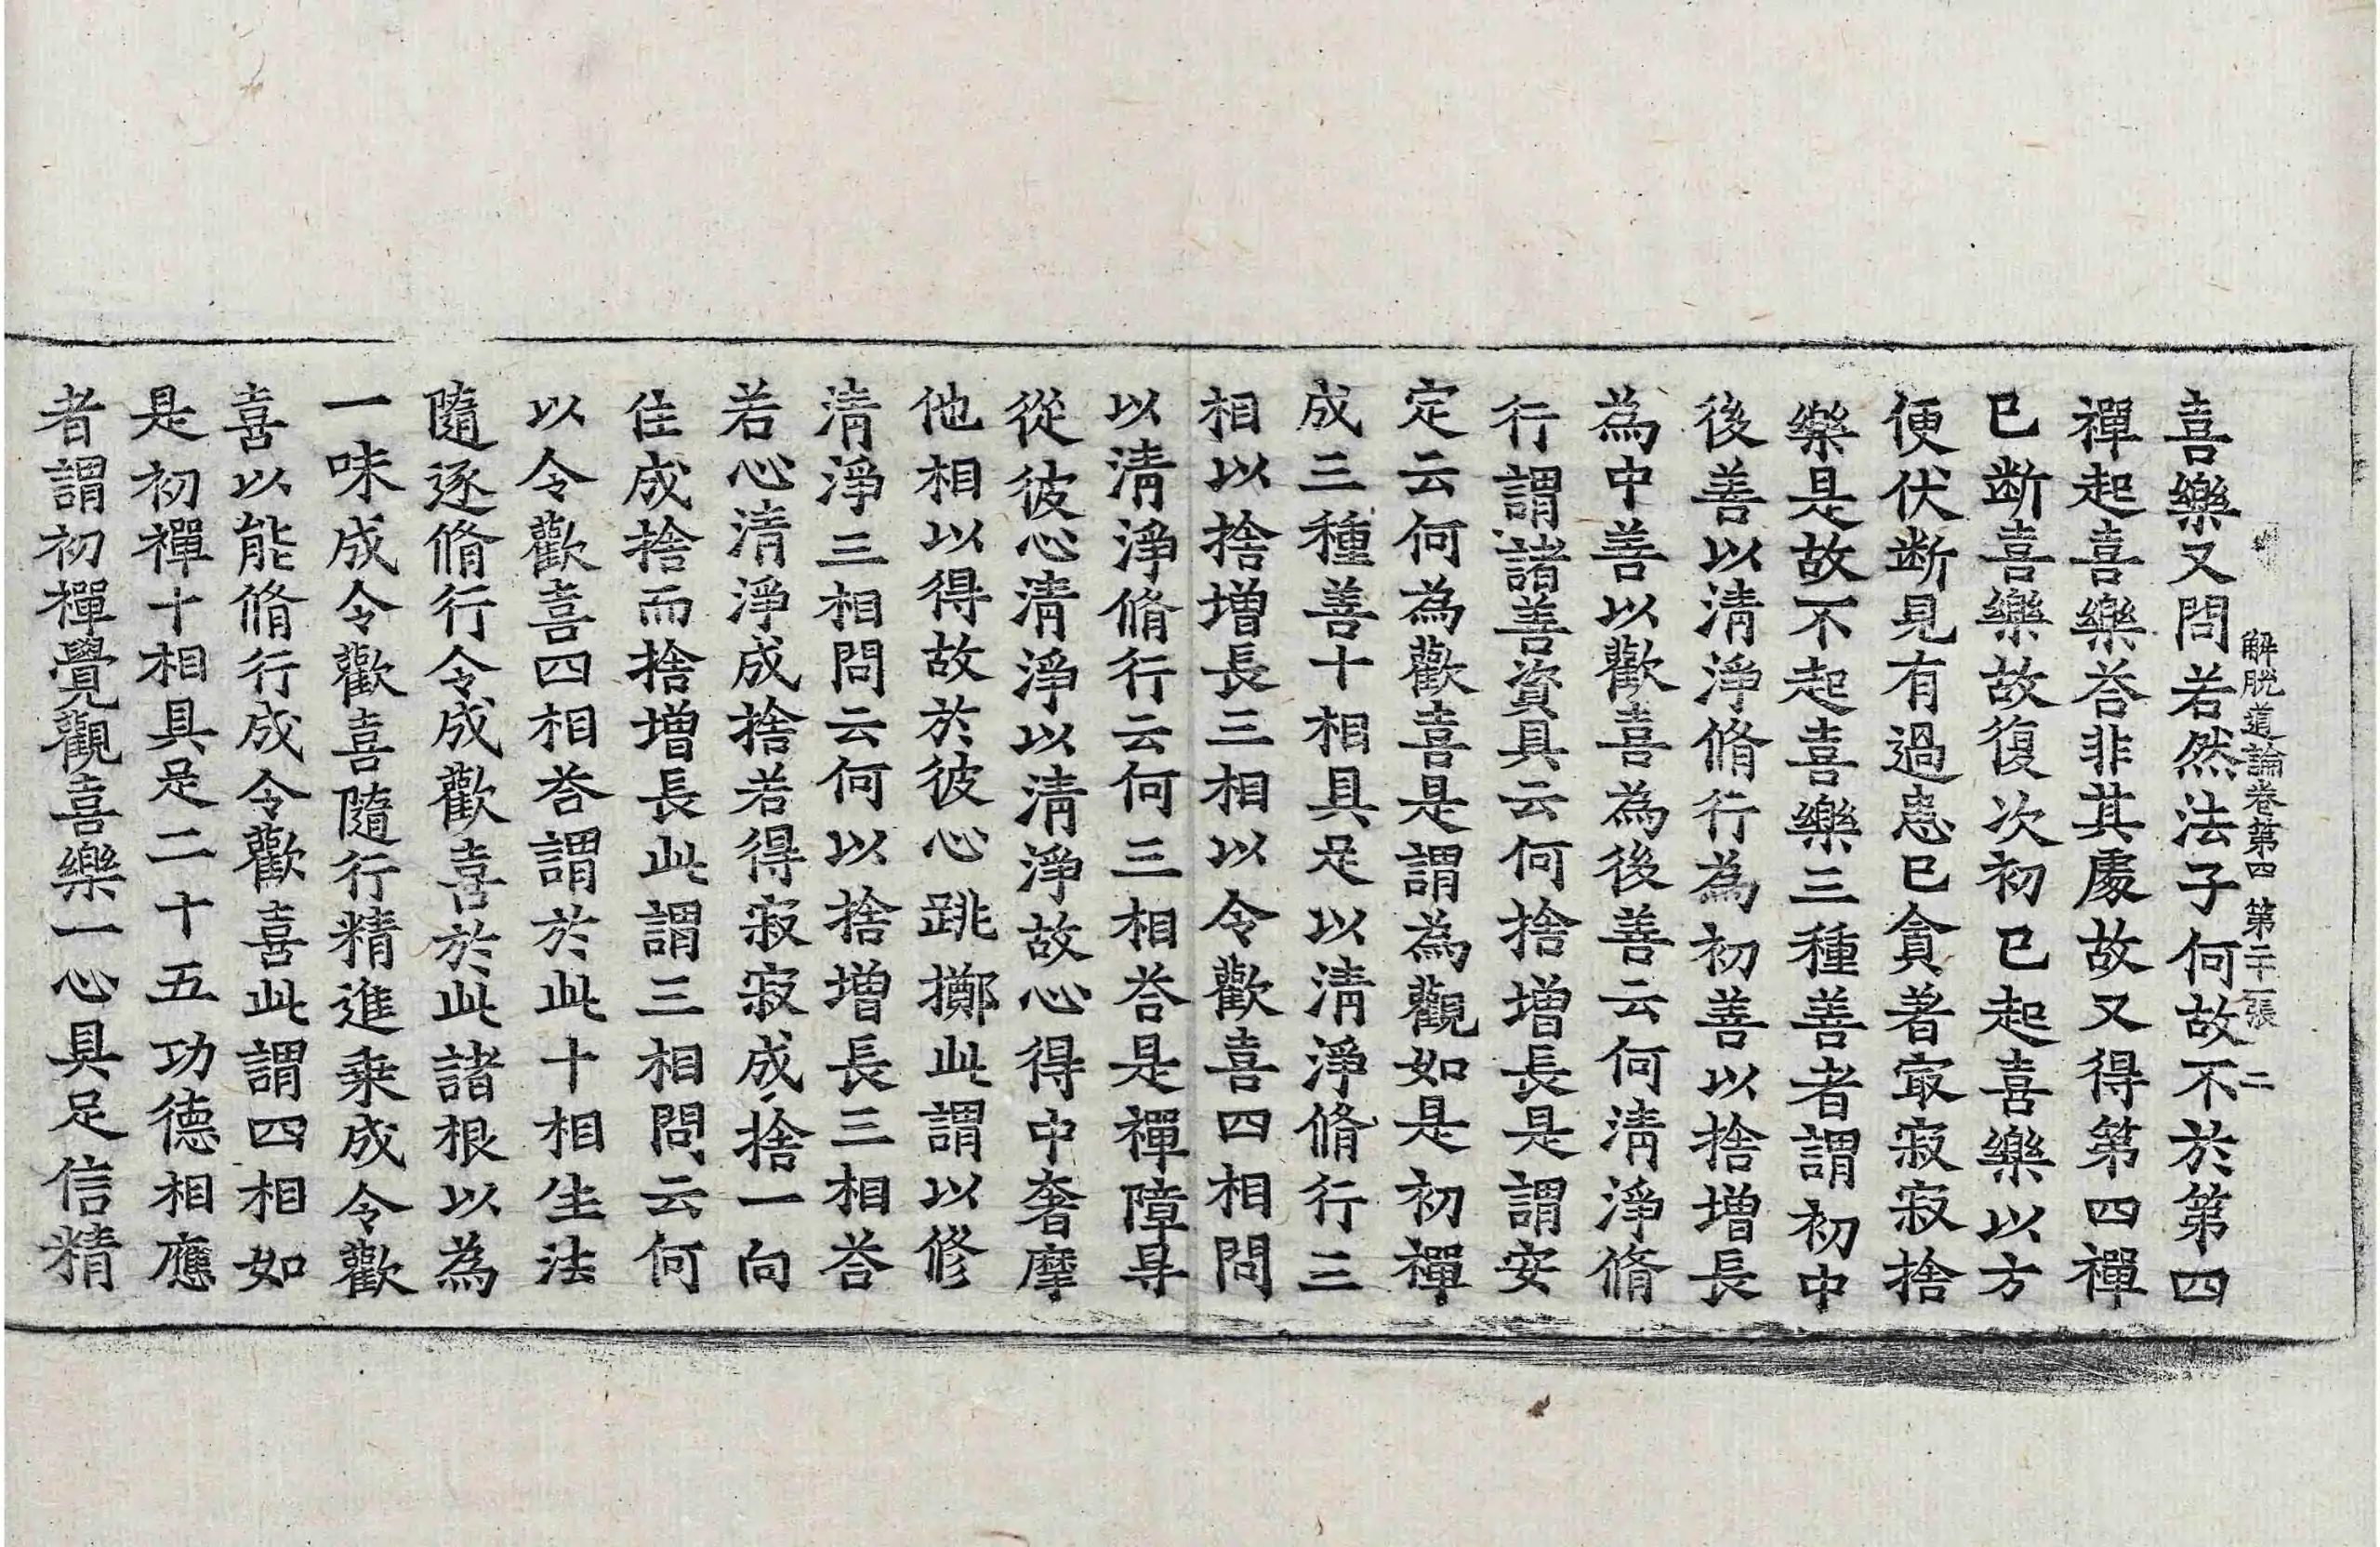 解脱道論卷第四 第二十一張 二
喜樂又問若然法子何故不於第四
禪起喜樂荅非其處故又得第四禪
已斷喜樂故復次初已起喜樂以方
便伏断見有過患已貪著寂寂寂捨
樂是故不起喜樂三種善者謂初中
後善以清淨脩行為初善以捨增長
為中善以歡喜為後善云何清淨脩
行謂諸善資具云何捨增長是謂安
定云何為歡喜是謂為觀如是初禪
成三種善十相具足以清淨脩行三
相以捨增長三相以令歡喜四相問
以清淨脩行云何三相荅是禪障㝵
從彼心清淨以清淨故心得中奢摩
他相以得故於彼心跳擲此謂以修
清淨三相問云何以捨增長三相荅
若心清淨成捨若得寂寂成捨一向
住成捨而捨增長此謂三相問云何
以令歡喜四相荅謂於此十相生法
隨逐脩行令成歡喜於此諸根以為
一味成令歡喜隨行精進乗成令歡
喜以能脩行成令歡喜此謂四相如
是初禪十相具足二十五功德相應
者謂初禪覺觀喜樂一心具足信精